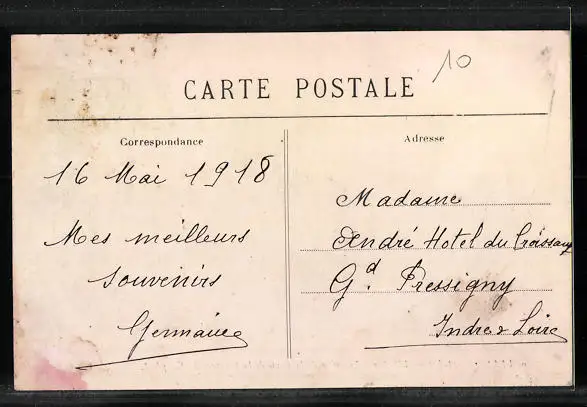 10
CARTE POSTALE
Correspondance
16 Mai 1918
Mes meilleurs
souvenirs
Germaine
Adresse
Madame
André Hotel du Croissant
Gd. Pressigny
Indre & Loire